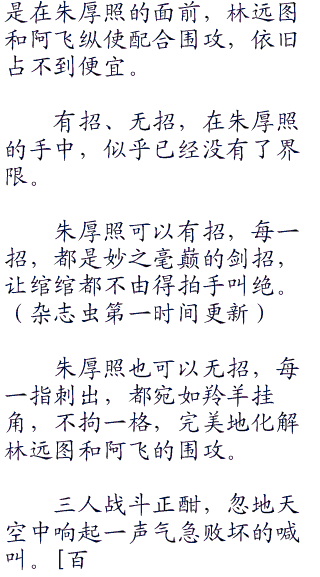 是在朱厚照的面前，林远图
和阿飞纵使配合围攻，依旧
占不到便宜。
有招、无招，在朱厚照
的手中，似乎已经没有了界
限。
朱厚照可以有招，每一
招，都是妙之毫巅的剑招，
让绾绾都不由得拍手叫绝。
（杂志虫第一时间更新）
朱厚照也可以无招，每
一指刺出，都宛如羚羊挂
角，不拘一格，完美地化解
林远图和阿飞的围攻。
三人战斗正酣，忽地天
空中响起一声气急败坏的喊
叫。[百